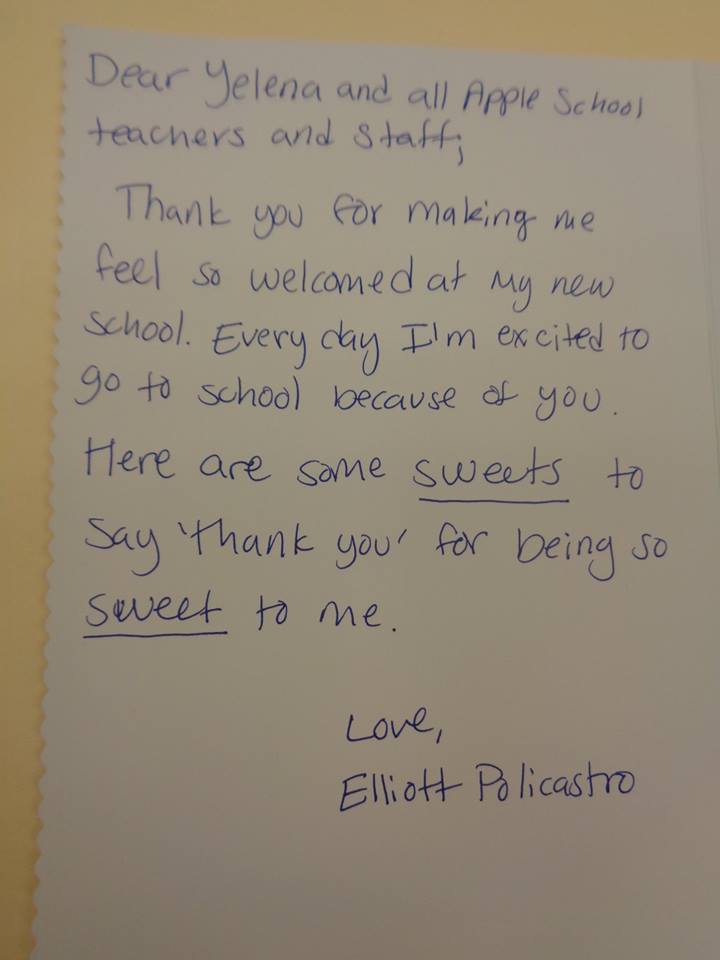 Dear Yelena and all Apple School
teachers and staff;
Thank you for making me
feel so welcomed at my new
school. Every day I'm excited to
go to school because of you.
Here are some sweets to
say 'thank you' for being so
sweet to me.
Love,
Elliott Policastro